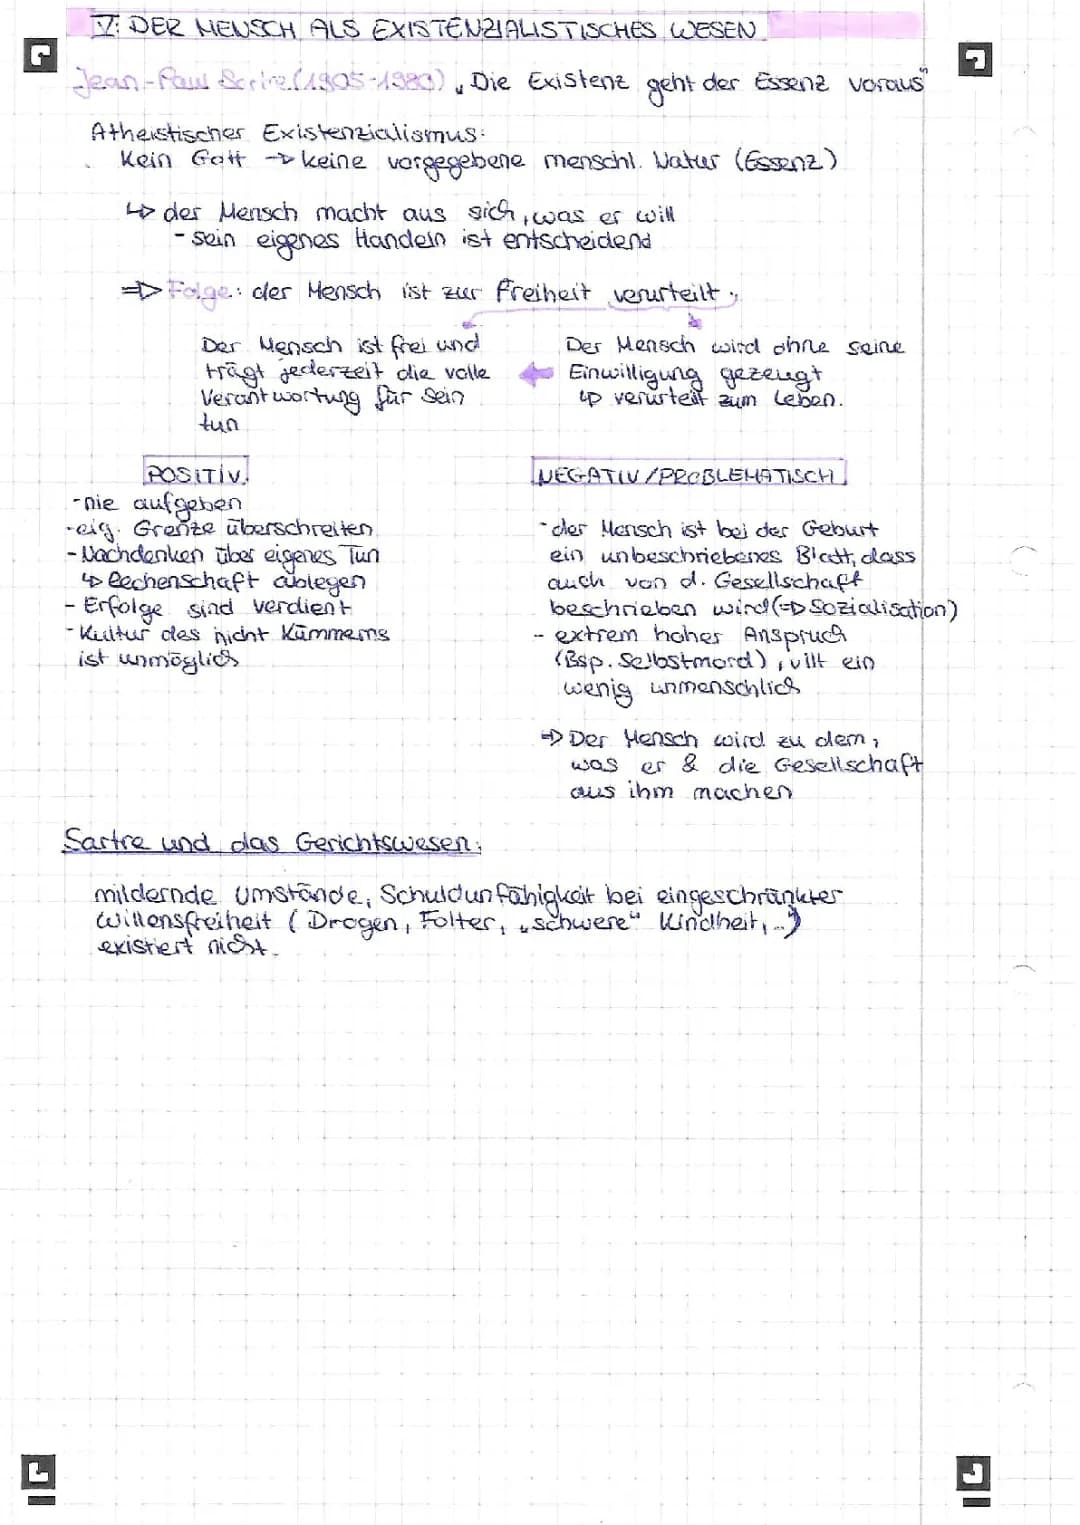 V. DER MENSCH ALS EXISTENZIALISTISCHES WESEN
Jean-Paul Sartre (1905-1980) „Die Existenz geht der Essenz voraus"
Atheistischer Existenzialismus:
Kein Gott → keine vorgegebene menschl. Natur (Essenz)
↳ der Mensch macht aus sich, was er will
- sein eigenes Handeln ist entscheidend
⇒ Folge: der Mensch ist zur Freiheit verurteilt.
Der Mensch ist frei und
trägt jederzeit die volle
Verantwortung für sein
tun
Der Mensch wird ohne seine
Einwilligung gezeugt
↳ verurteilt zum Leben.
POSITIV.
- nie aufgeben
- eig. Grenze überschreiten
- Nachdenken über eigenes Tun
↳ Rechenschaft ablegen
- Erfolge sind verdient
- Kultur des nicht Kümmerns
ist unmöglich
NEGATIV/PROBLEMATISCH
- der Mensch ist bei der Geburt
ein unbeschriebenes Blatt, dass
auch von d. Gesellschaft
beschrieben wird (⇒ Sozialisation)
- extrem hoher Anspruch
(Bsp. Selbstmord), vllt ein
wenig unmenschlich
⇒ Der Mensch wird zu dem,
was er & die Gesellschaft
aus ihm machen
Sartre und das Gerichtswesen:
mildernde Umstände, Schuldunfähigkeit bei eingeschränkter
Willensfreiheit (Drogen, Folter, „schwere" Kindheit,..)
existiert nicht.